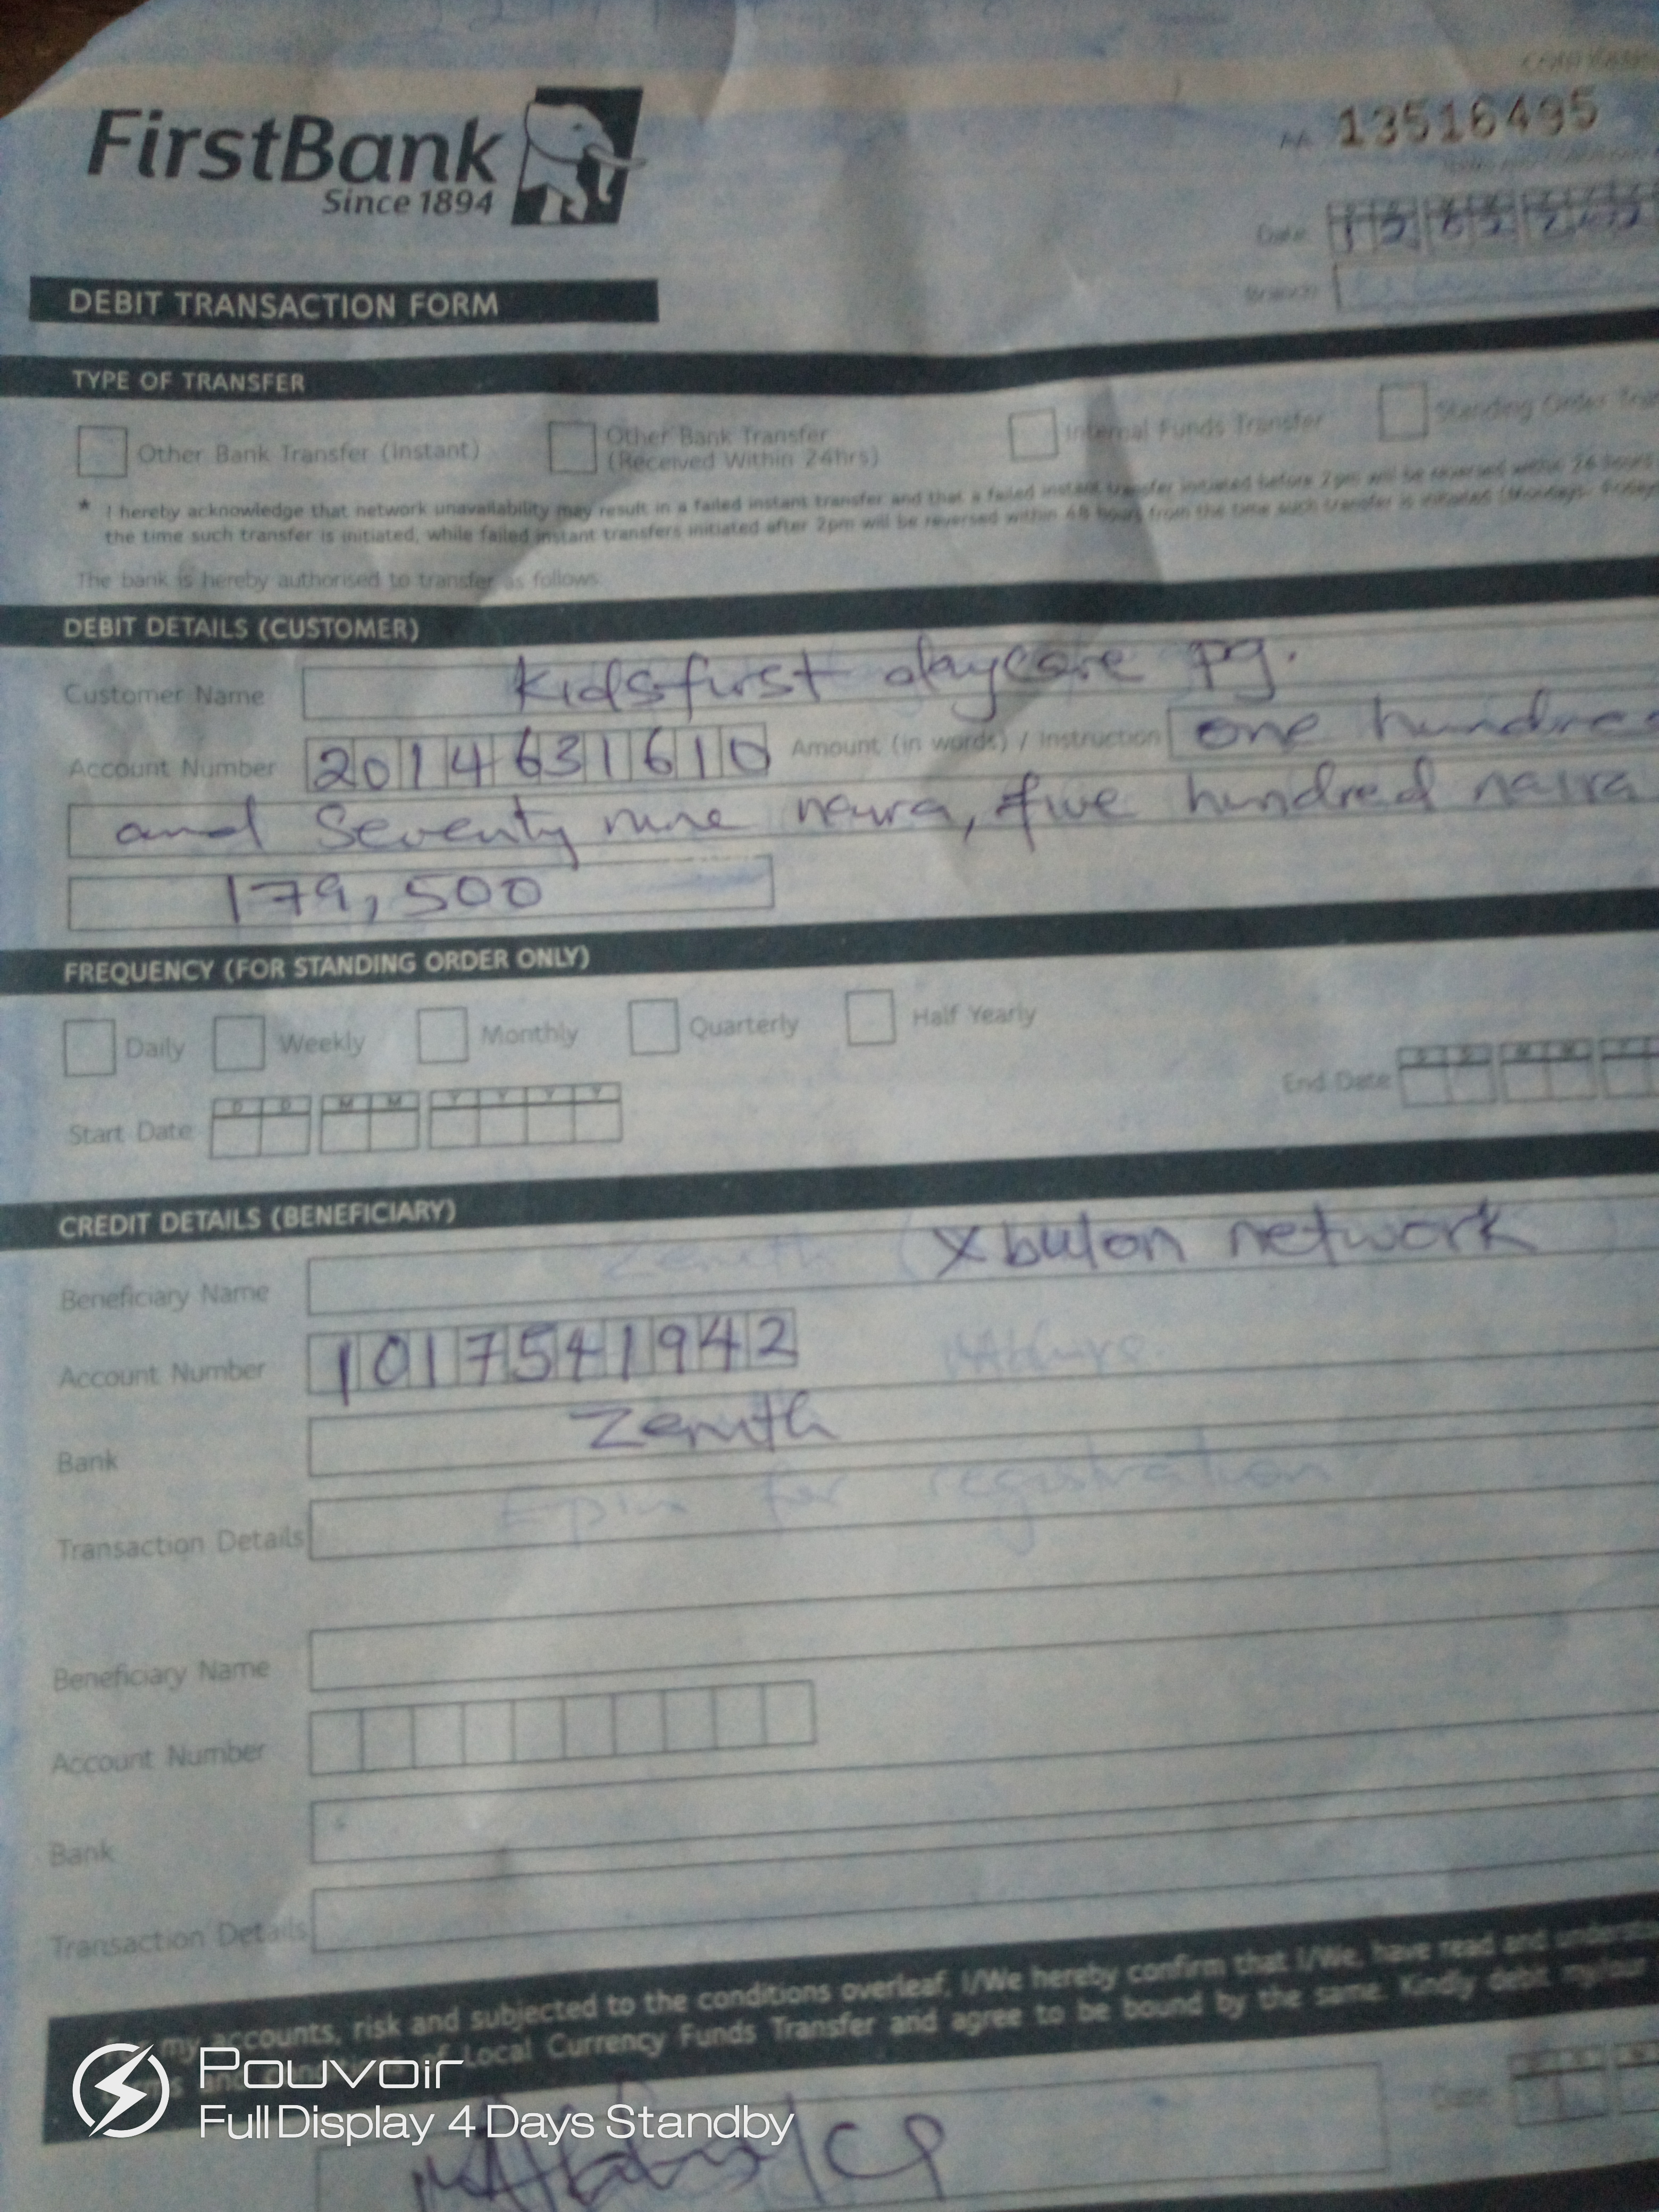 FirstBank
Since 1894
13516495
Date
Branch
DEBIT TRANSACTION FORM
TYPE OF TRANSFER
Other Bank Transfer (Instant)
Other Bank Transfer (Received Within 24hrs)
Internal Funds Transfer
Standing Order
* I hereby acknowledge that network unavailability may result in a failed instant transfer and that a failed instant transfer initiated before 2pm will be reversed within 24 hours
the time such transfer is initiated, while failed instant transfers initiated after 2pm will be reversed within 48 hours from the time such transfer is initiated (Mondays- Friday
The bank is hereby authorised to transfer as follows
DEBIT DETAILS (CUSTOMER)
Customer Name Kidsfirst daycare pg.
Account Number 2014631610 Amount (in words) / Instruction one hundred
and Seventy nine naira, five hundred naira
179,500
FREQUENCY (FOR STANDING ORDER ONLY)
Daily Weekly Monthly Quarterly Half Yearly
Start Date D D M M Y Y Y Y End Date D D M M Y
CREDIT DETAILS (BENEFICIARY)
Beneficiary Name Zenith (Xbulon network
Account Number 1017541942
Bank Zenith
Transaction Details Epin for registration
Beneficiary Name
Account Number
Bank
Transaction Details
my accounts, risk and subjected to the conditions overleaf, I/We hereby confirm that I/We, have read and
of Local Currency Funds Transfer and agree to be bound by the same. Kindly debit my/our
Date
Pouvoir
Full Display 4 Days Standby